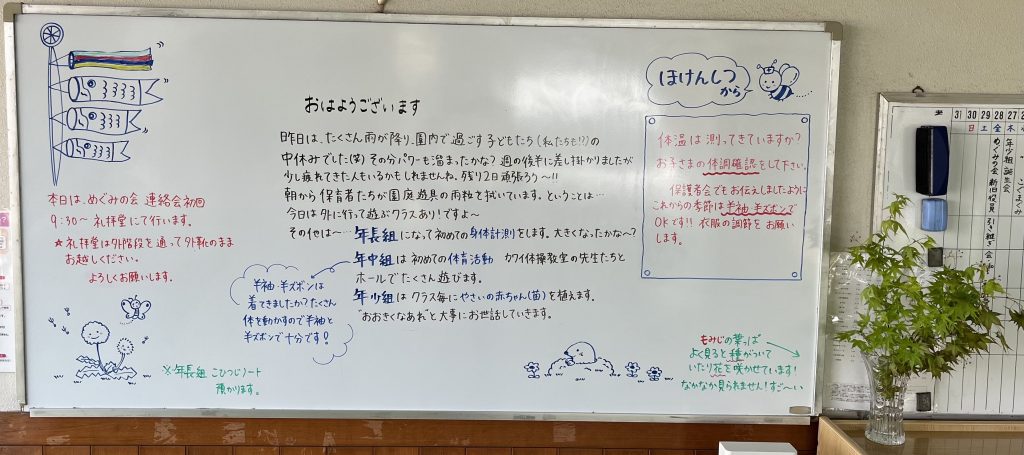 おはようございます
昨日は、たくさん雨が降り、園内で過ごす子どもたち(私たちも!?)の
中休みでした(笑)その分パワーも溜まったかな?週の後半に差し掛かりましたが
少し疲れてきた人もいるかもしれませんね。残り2日頑張ろう〜!!
朝から保育者たちが園庭遊具の雨粒を拭いています。ということは…
今日は外に行って遊ぶクラスあり!ですよ〜
その他は〜…年長組になって初めての身体計測をします。大きくなったかな〜?
年中組は初めての体育活動 カワイ体操教室の先生たちと
ホールでたくさん遊びます。
年少組はクラス毎にやさいの赤ちゃん(苗)を植えます。
"おおきくなあれ"と大事にお世話していきます。
本日は、めぐみの会 連絡会初回
9:30〜礼拝堂にて行います。
★礼拝堂は外階段を通って外靴のまま
お越しください。
よろしくお願いします。
半袖・半ズボンは
着てきましたか?たくさん
体を動かすので半袖と
半ズボンで十分です!
※年長組 こひつじノート
預かります。
ほけんしつ
から
体温は測ってきていますか?
お子さまの体調確認をして下さい。
保護者会でもお伝えしましたように
これからの季節は半袖・半ズボンで
OKです!!衣服の調節をお願い
します。
もみじの葉っぱ
よく見ると種がついて
いたり花を咲かせています!
なかなか見られません!すご〜い
31 30 29 28 27
日 土 金 木
めぐみの会 新旧役員 引き継ぎ会
年少組 誕生会